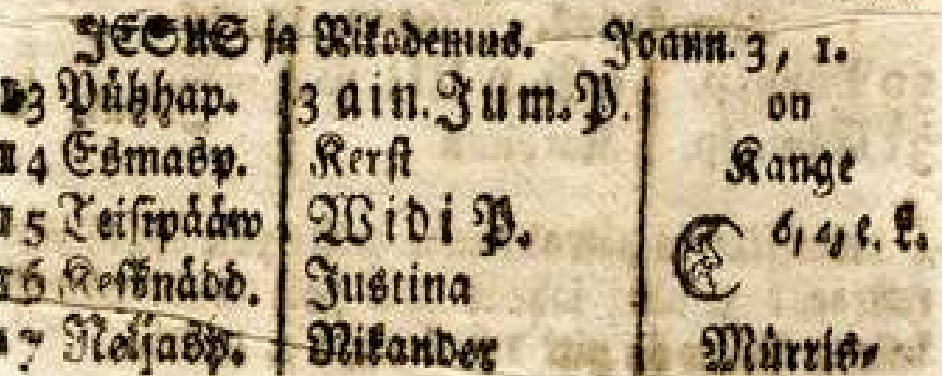 JESUS ja Nikodemus. Joann. 3, 1.
13 Pühhap. 3 ain. Jum. P. on
14 Esmasp. Kerst Kange
15 Teisipääw Widi P. 6, 4, e. k.
16 Kesknädd. Justina
17 Neljasp. Nikander Mürris-